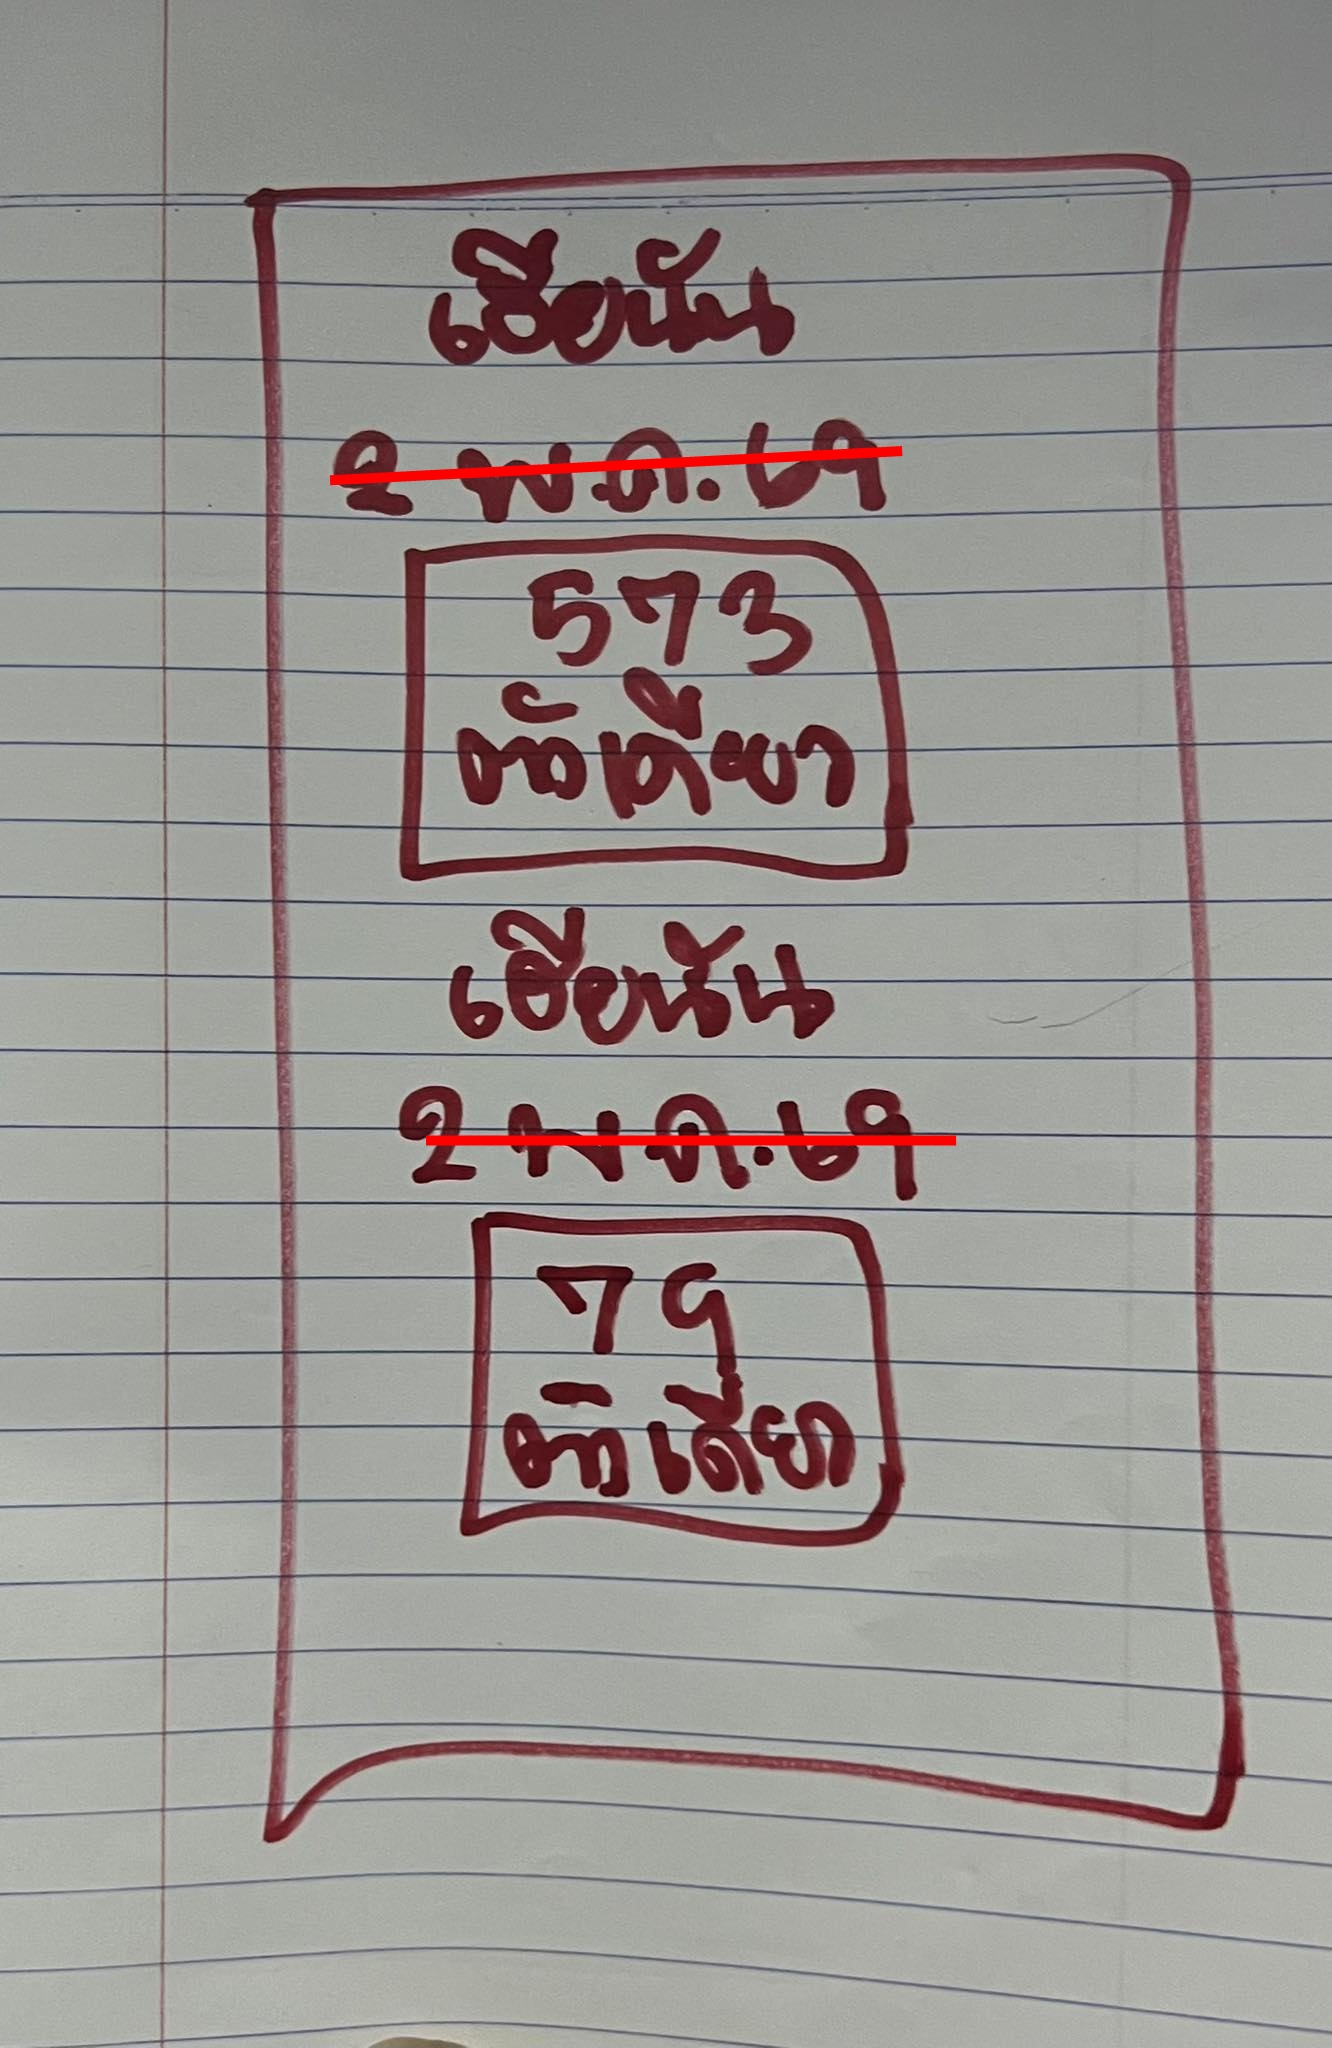 เฮียนัน
2 พ.ค. 69
573
ตัวเดียว
เฮียนัน
2 พ.ค. 69
79
ตัวเดียว